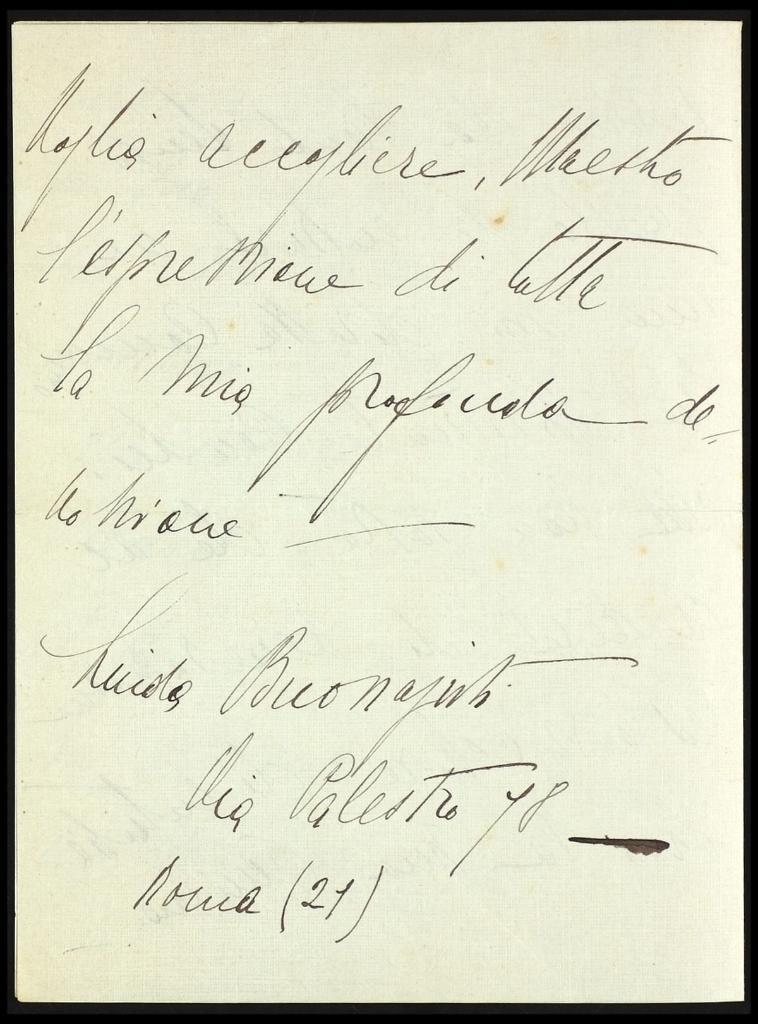 Voglia accogliere, Maestro
l'espressione di tutta
la mia profonda de=
vozione
Buonajuti
Via Palestro 78
Roma (21)